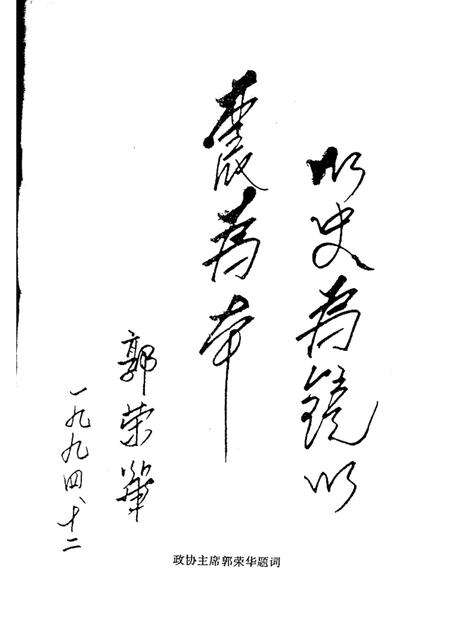 以史为镜以
农为本
郭荣华
一九九四、十二
政协主席郭荣华题词